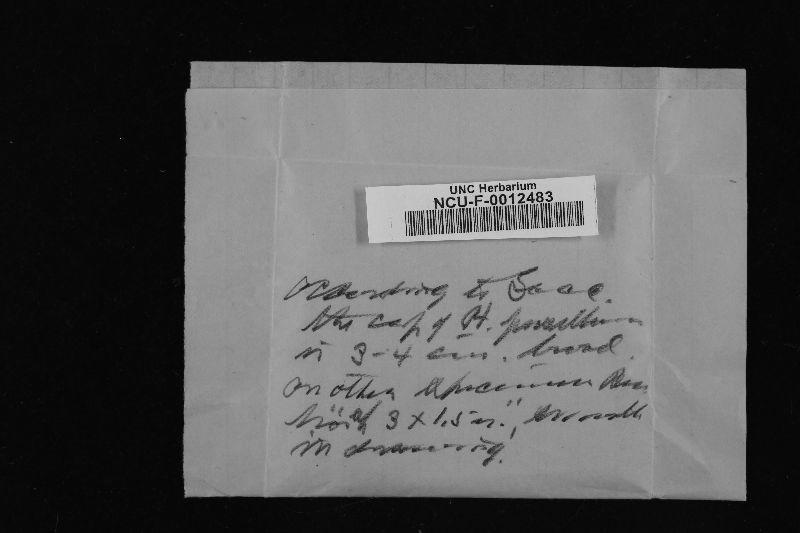 UNC Herbarium
NCU-F-0012483
according to Isaac.
the cap of H. pusillum
is 3-4 cm. broad.
another specimen
3 x 1.5 in.",
in drawing.